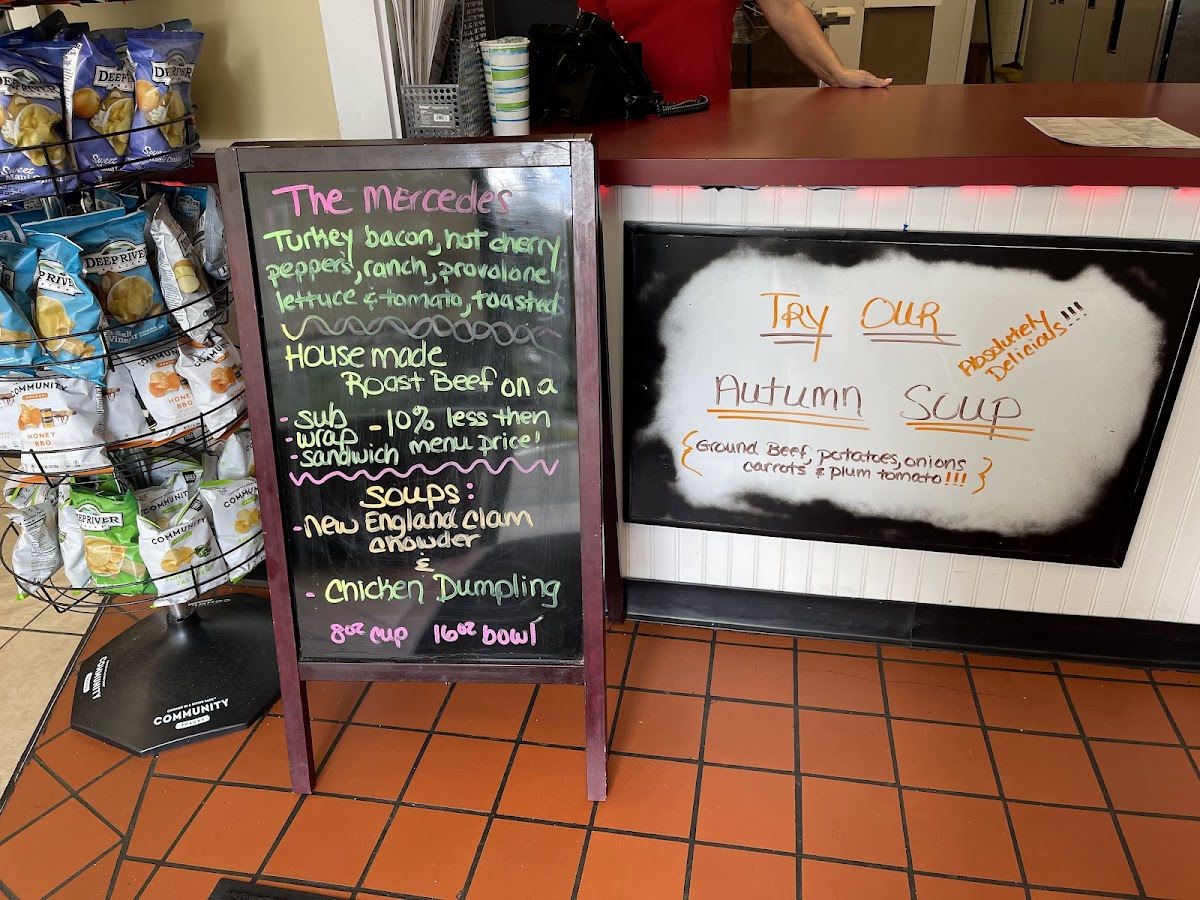 The Mercedes
Turkey bacon, hot cherry
peppers, ranch, provolone
lettuce & tomato, toasted
House made
Roast Beef on a
- sub
- wrap
- sandwich
- 10% less then
menu price!
Soups:
- New England Clam
Chowder
&
- Chicken Dumpling
8oz cup 16oz bowl
Try Our
Absolutely
Delicious!!!
Autumn Soup
{Ground Beef, potatoes, onions
carrots & plum tomato!!!}
DEEP RIVER
DEEP RIVER
Sweet
DEEP RIVER
DEEP RIVER
COMMUNITY
HONEY
BBQ
COMMUNITY
HONEY
BBQ
DEEP RIVER
COMMUNITY
COMMUNITY
COMMUNITY
COMMUNITY